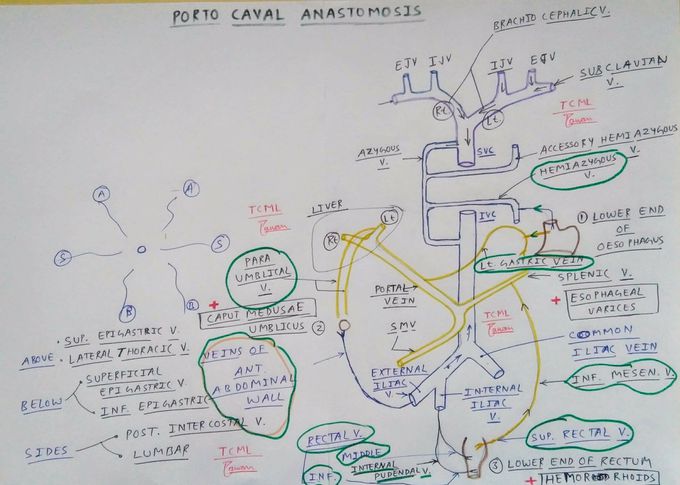 PORTO CAVAL ANASTOMOSIS
BRACHIO CEPHALIC V.
EJV IJV IJV EJV
SUBCLAVIAN V.
Rt Lt.
TCML
SVC
AZYGOUS V.
ACCESSORY HEMIAZYGOS V.
HEMIAZYGOUS V.
A A
S S
B B
TCML
LIVER
Rt Lt
IVC
① LOWER END OF OESOPHAGUS
LT. GASTRIC VEIN
SPLENIC V.
+ ESOPHAGEAL VARICES
PARA UMBLICAL V.
+ CAPUT MEDUSAE
UMBLICUS ②
PORTAL VEIN
SMV
TCML
COMMON ILIAC VEIN
EXTERNAL ILIAC V.
INTERNAL ILIAC V.
INF. MESEN. V.
ABOVE
SUP. EPIGASTRIC V.
LATERAL THORACIC V.
BELOW
SUPERFICIAL EPIGASTRIC V.
INF. EPIGASTRIC
SIDES
POST. INTERCOSTAL V.
LUMBAR
TCML
VEINS OF ANT. ABDOMINAL WALL
RECTAL V.
MIDDLE
INF.
INTERNAL PUDENDAL V.
SUP. RECTAL V.
③ LOWER END OF RECTUM
+ HEMORRHOIDS